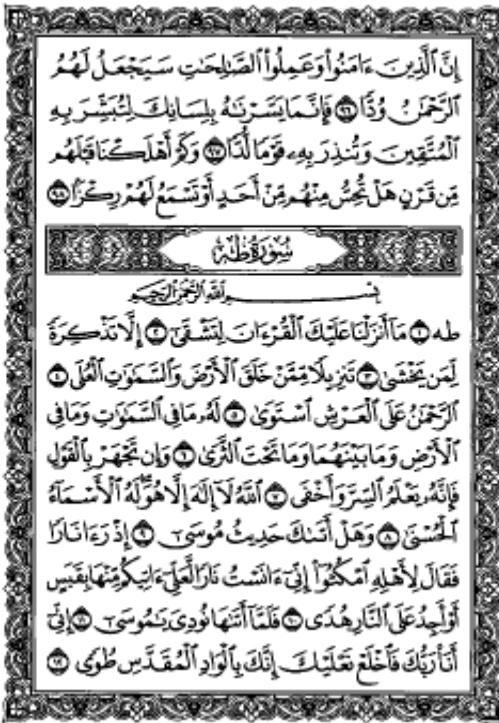 إِنَّ ٱلَّذِينَ ءَامَنُوا۟ وَعَمِلُوا۟ ٱلصَّٰلِحَٰتِ سَيَجْعَلُ لَهُمُ
ٱلرَّحْمَٰنُ وُدًّا ٩٦ فَإِنَّمَا يَسَّرْنَٰهُ بِلِسَانِكَ لِتُبَشِّرَ بِهِ
ٱلْمُتَّقِينَ وَتُنذِرَ بِهِۦ قَوْمًا لُّدًّا ٩٧ وَكَمْ أَهْلَكْنَا قَبْلَهُم
مِّن قَرْنٍ هَلْ تُحِسُّ مِنْهُم مِّنْ أَحَدٍ أَوْ تَسْمَعُ لَهُمْ رِكْزًۢا ٩٨
سُورَةُ طه
بِسْمِ ٱللَّهِ ٱلرَّحْمَٰنِ ٱلرَّحِيمِ
طه ١ مَآ أَنزَلْنَا عَلَيْكَ ٱلْقُرْءَانَ لِتَشْقَىٰٓ ٢ إِلَّا تَذْكِرَةً
لِّمَن يَخْشَىٰ ٣ تَنزِيلًا مِّمَّنْ خَلَقَ ٱلْأَرْضَ وَٱلسَّمَٰوَٰتِ ٱلْعُلَى ٤
ٱلرَّحْمَٰنُ عَلَى ٱلْعَرْشِ ٱسْتَوَىٰ ٥ لَهُۥ مَا فِى ٱلسَّمَٰوَٰتِ وَمَا فِى
ٱلْأَرْضِ وَمَا بَيْنَهُمَا وَمَا تَحْتَ ٱلثَّرَىٰ ٦ وَإِن تَجْهَرْ بِٱلْقَوْلِ
فَإِنَّهُۥ يَعْلَمُ ٱلسِّرَّ وَأَخْفَى ٧ ٱللَّهُ لَآ إِلَٰهَ إِلَّا هُوَ لَهُ ٱلْأَسْمَآءُ
ٱلْحُسْنَىٰ ٨ وَهَلْ أَتَىٰكَ حَدِيثُ مُوسَىٰٓ ٩ إِذْ رَءَا نَارًا
فَقَالَ لِأَهْلِهِ ٱمْكُثُوٓا۟ إِنِّىٓ ءَانَسْتُ نَارًا لَّعَلِّىٓ ءَاتِيكُم مِّنْهَا بِقَبَسٍ
أَوْ أَجِدُ عَلَى ٱلنَّارِ هُدًى ١٠ فَلَمَّآ أَتَىٰهَا نُودِىَ يَٰمُوسَىٰٓ ١١ إِنِّىٓ
أَنَا۠ رَبُّكَ فَٱخْلَعْ نَعْلَيْكَ إِنَّكَ بِٱلْوَادِ ٱلْمُقَدَّسِ طُوًى ١٢